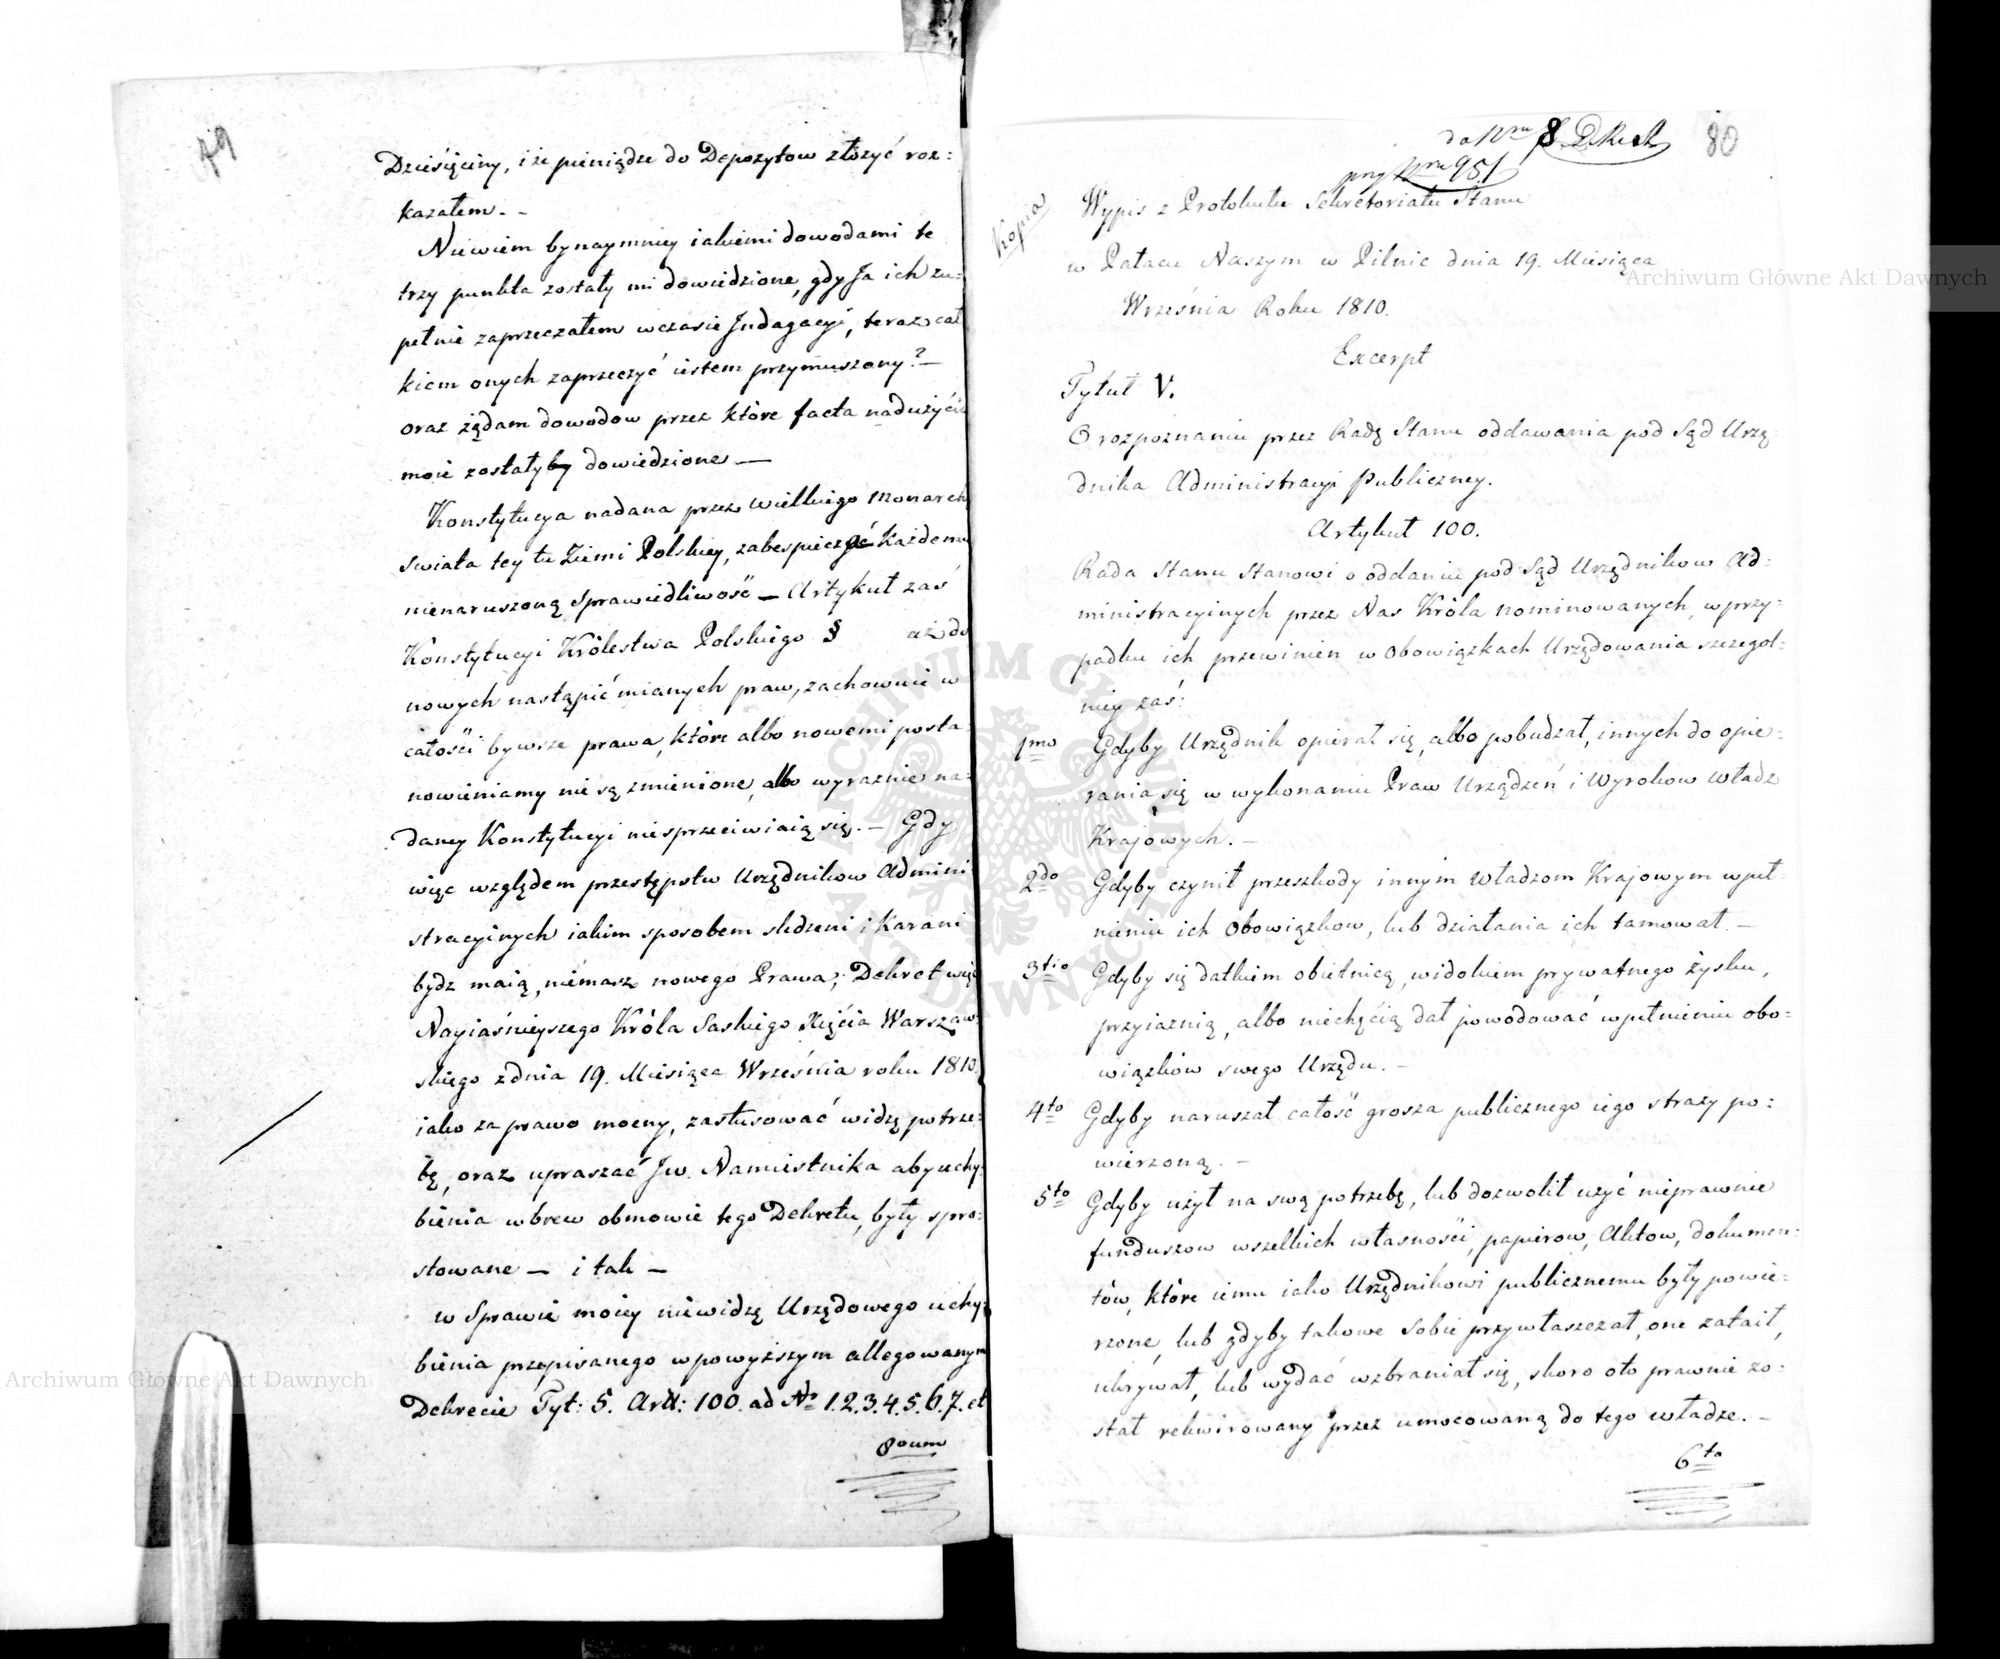 79
Dziesięciny, i że pieniądze do Depozytow złożyć roz:
kazałem. -
Niewiem bynaymniey iakiemi dowodami te
trzy punkta zostały mi dowiedzione, gdy Ja ich zu:
pełnie zaprzeczałem wczasie Indagacyi, teraz cał
kiem onych zaprzeczyć iestem przymuszony? —
oraz żądam dowodow przez które facta nadużycia
moie zostałyby dowiedzione —
Konstytucya nadana przez wielkiego Monarch
swiata tey tu Ziemi Polskiey, zabespiecza każdemu
nienaruszoną sprawiedliwość — Artykuł zaś
Konstytucyi Królestwa Polskiego § aż do
nowych nastąpić mianych praw, zachowuie w
całości bywsze prawa, które albo nowemi posta:
nowieniamy nie są zmienione, albo wyraznie na:
daney Konstytucyi niesprzeciwiaią się. — Gdy
więc względem przestępstw Urzędnikow Admini
stracyinych iakim sposobem sledzeni i karani
bydz maią, niemasz nowego Prawa; Dekret więc
Nayiaśnieyszego Króla Saskiego Xięcia Warszaw:
skiego zdnia 19. Miesiąca Września roku 1810.
iako za prawo mocny, zastosować widzę potrze:
bę, oraz upraszać Jw. Namiestnika aby uchy:
bienia wbrew obmowie tego Dekretu, były spro:
stowane — i tak —
w Sprawie moiey niewidzę Urzędowego uchy:
bienia przepisanego wpowyższym allegowanym
Dekrecie Tyt: 5. Art: 100. ad No 1.2.3.4.5.6.7. et
8oum
do Nru 8
80
przy Nrze 951
Kopia
Wypis z Protokułu Sekretariatu Stanu
w Pałacu Naszym w Pilnic dnia 19. Miesiąca
Września Roku 1810.
Excerpt
Tytuł V.
O rozpoznaniu przez Radę Stanu oddawania pod Sąd Urzę:
dnika Administracyi Publiczney.
Artykuł 100.
Rada Stanu Stanowi o oddaniu pod Sąd Urzędnikow Ad:
ministracyinych przez Nas Króla nominowanych, w przy:
padku ich przewinień w Obowiązkach Urzędowania szczegol:
niey zaś:
1mo Gdyby Urzędnik opierał się, albo pobudzał, innych do opie:
rania się w wykonaniu Praw Urządzeń i Wyrokow Władz
Krajowych. —
2do Gdyby czynił przeszkody innym Władzom Krajowym w peł:
nieniu ich Obowiązkow, lub działania ich tamował. —
3tio Gdyby się datkiem obietnicą, widokiem prywatnego zysku,
przyiaznią, albo niechęcią dał powodować w pełnieniu obo:
wiązków swego Urzędu. —
4to Gdyby naruszał całość grosza publicznego iego straży po:
wierzoną. —
5to Gdyby użył na swą potrzebę, lub dozwolił użyć nieprawnie
funduszow wszelkich własności, papierow, Aktow, dokumen:
tów, które iemu iako Urzędnikowi publicznemu były powie:
rzone, lub gdyby takowe Sobie przywłaszczał, one zataił,
ukrywał, lub wydać wzbraniał się, skoro oto prawnie zo:
stał rekwirowany przez umocowaną do tego władze. —
6to
Archiwum Główne Akt Dawnych
Archiwum Główne Akt Dawnych
ARCHIWUM GŁÓWNE AKT DAWNYCH